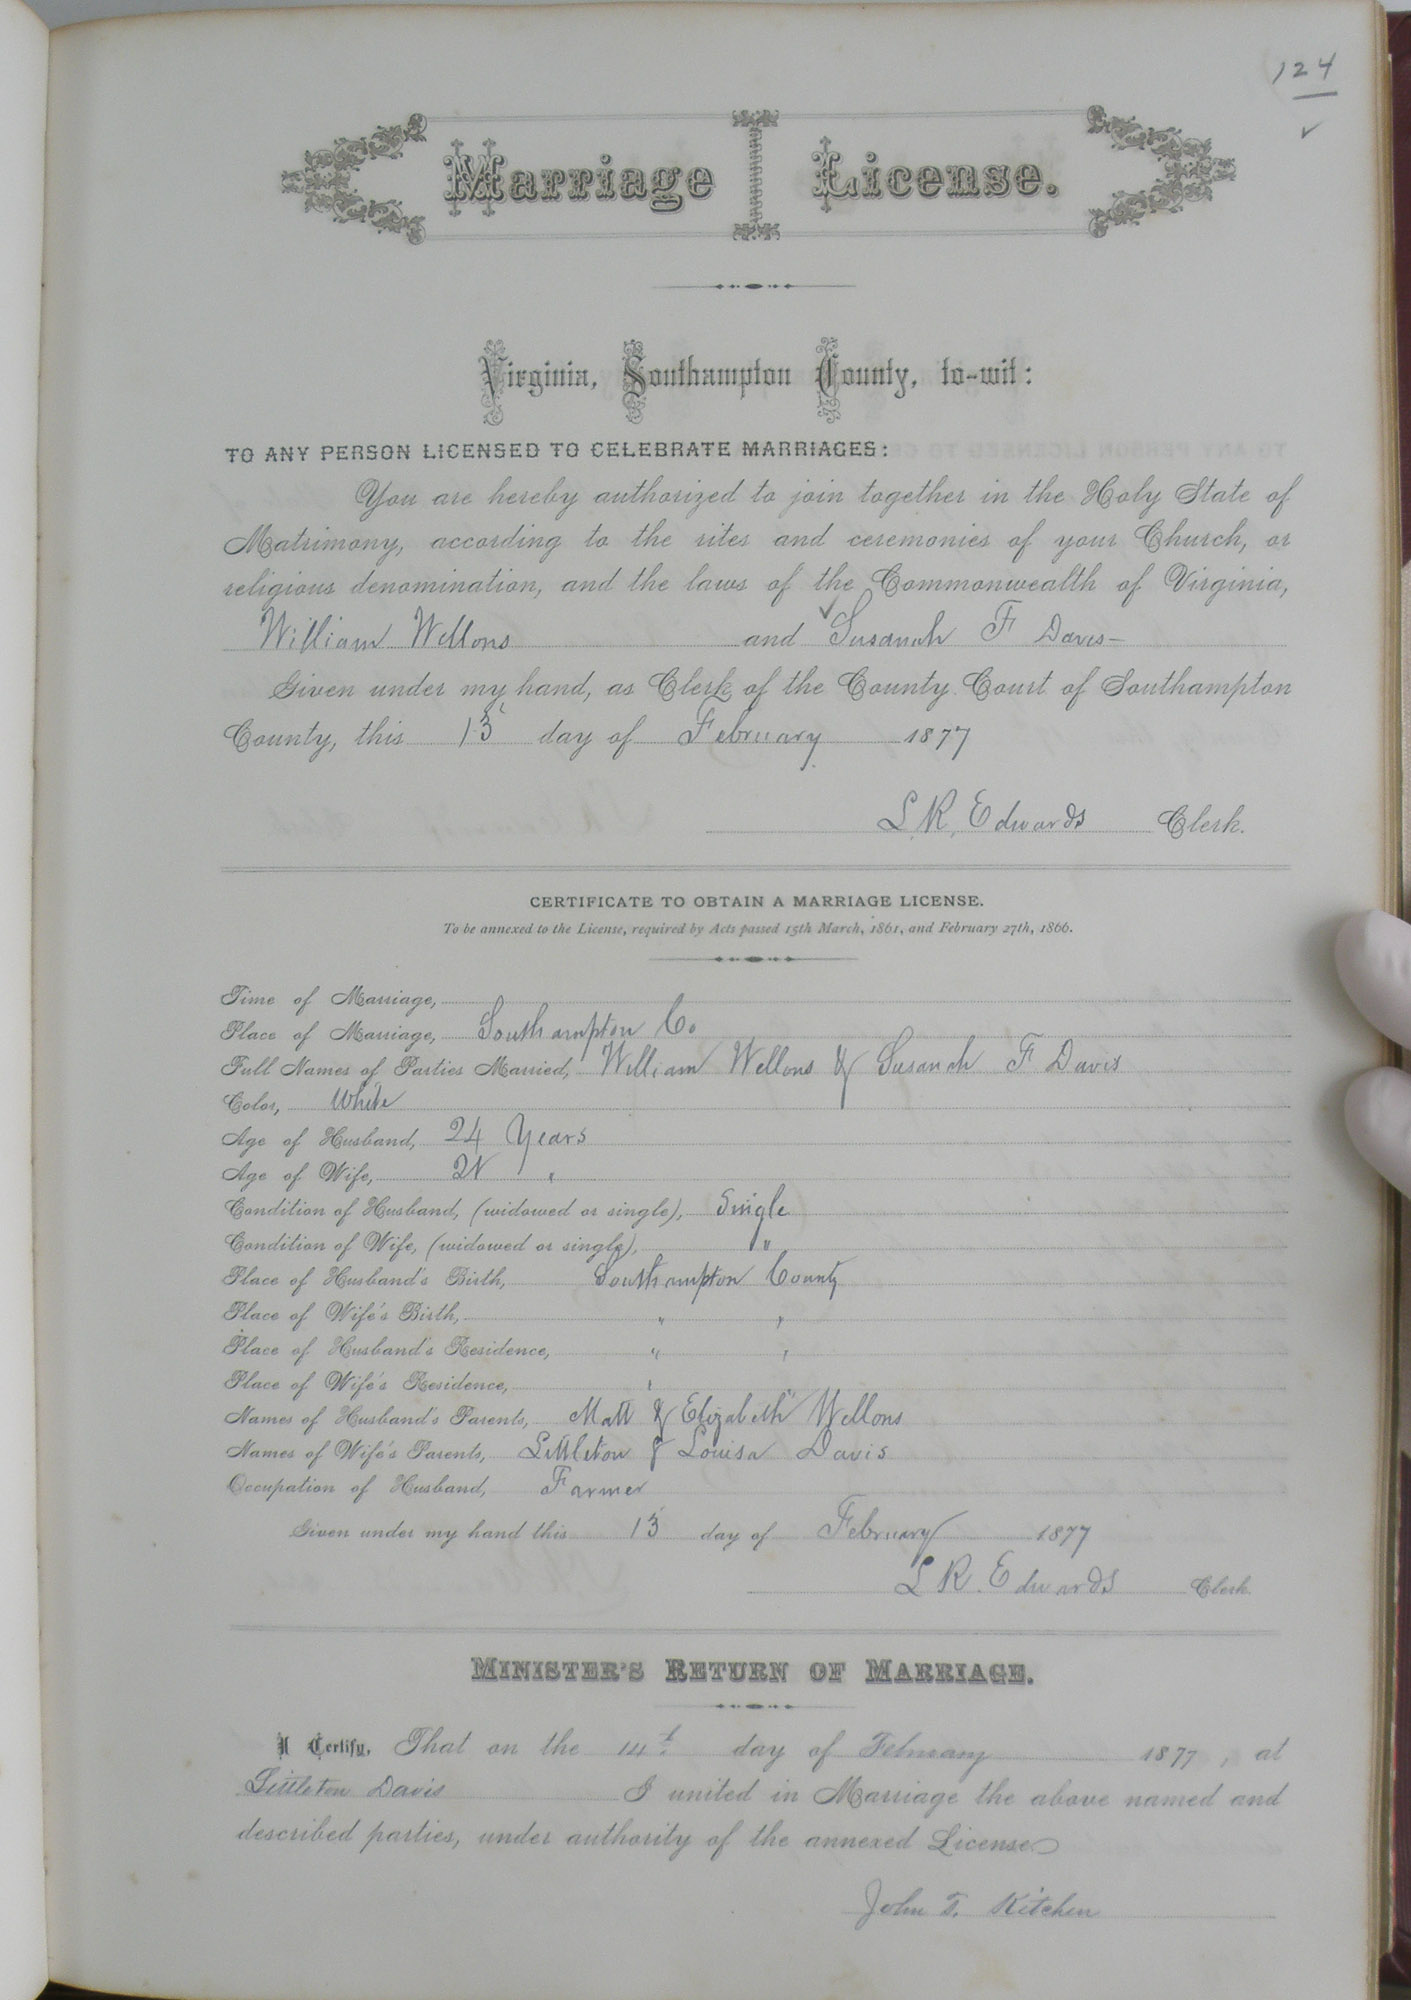 124
Marriage License.
Virginia, Southampton County, to-wit:
TO ANY PERSON LICENSED TO CELEBRATE MARRIAGES:
You are hereby authorized to join together in the Holy State of
Matrimony, according to the rites and ceremonies of your Church, or
religious denomination, and the laws of the Commonwealth of Virginia,
William Wellons and Susanah F Davis
Given under my hand, as Clerk of the County Court of Southampton
County, this 13 day of February 1877
L. R. Edwards Clerk.
CERTIFICATE TO OBTAIN A MARRIAGE LICENSE.
To be annexed to the License, required by Acts passed 15th March, 1861, and February 27th, 1866.
Time of Marriage,
Place of Marriage, Southampton Co
Full Names of Parties Married, William Wellons & Susanah F Davis
Color, White
Age of Husband, 24 Years
Age of Wife, "
Condition of Husband, (widowed or single), Single
Condition of Wife, (widowed or single), "
Place of Husband's Birth, Southampton County
Place of Wife's Birth, " "
Place of Husband's Residence, " "
Place of Wife's Residence, "
Names of Husband's Parents, Matt & Elizabeth Wellons
Names of Wife's Parents, Littleton & Louisa Davis
Occupation of Husband, Farmer
Given under my hand this 13 day of February 1877
L R. Edwards Clerk.
MINISTER'S RETURN OF MARRIAGE.
I Certify, That on the 14th day of February 1877, at
Littleton Davis I united in Marriage the above named and
described parties, under authority of the annexed License
John T. Kitchen